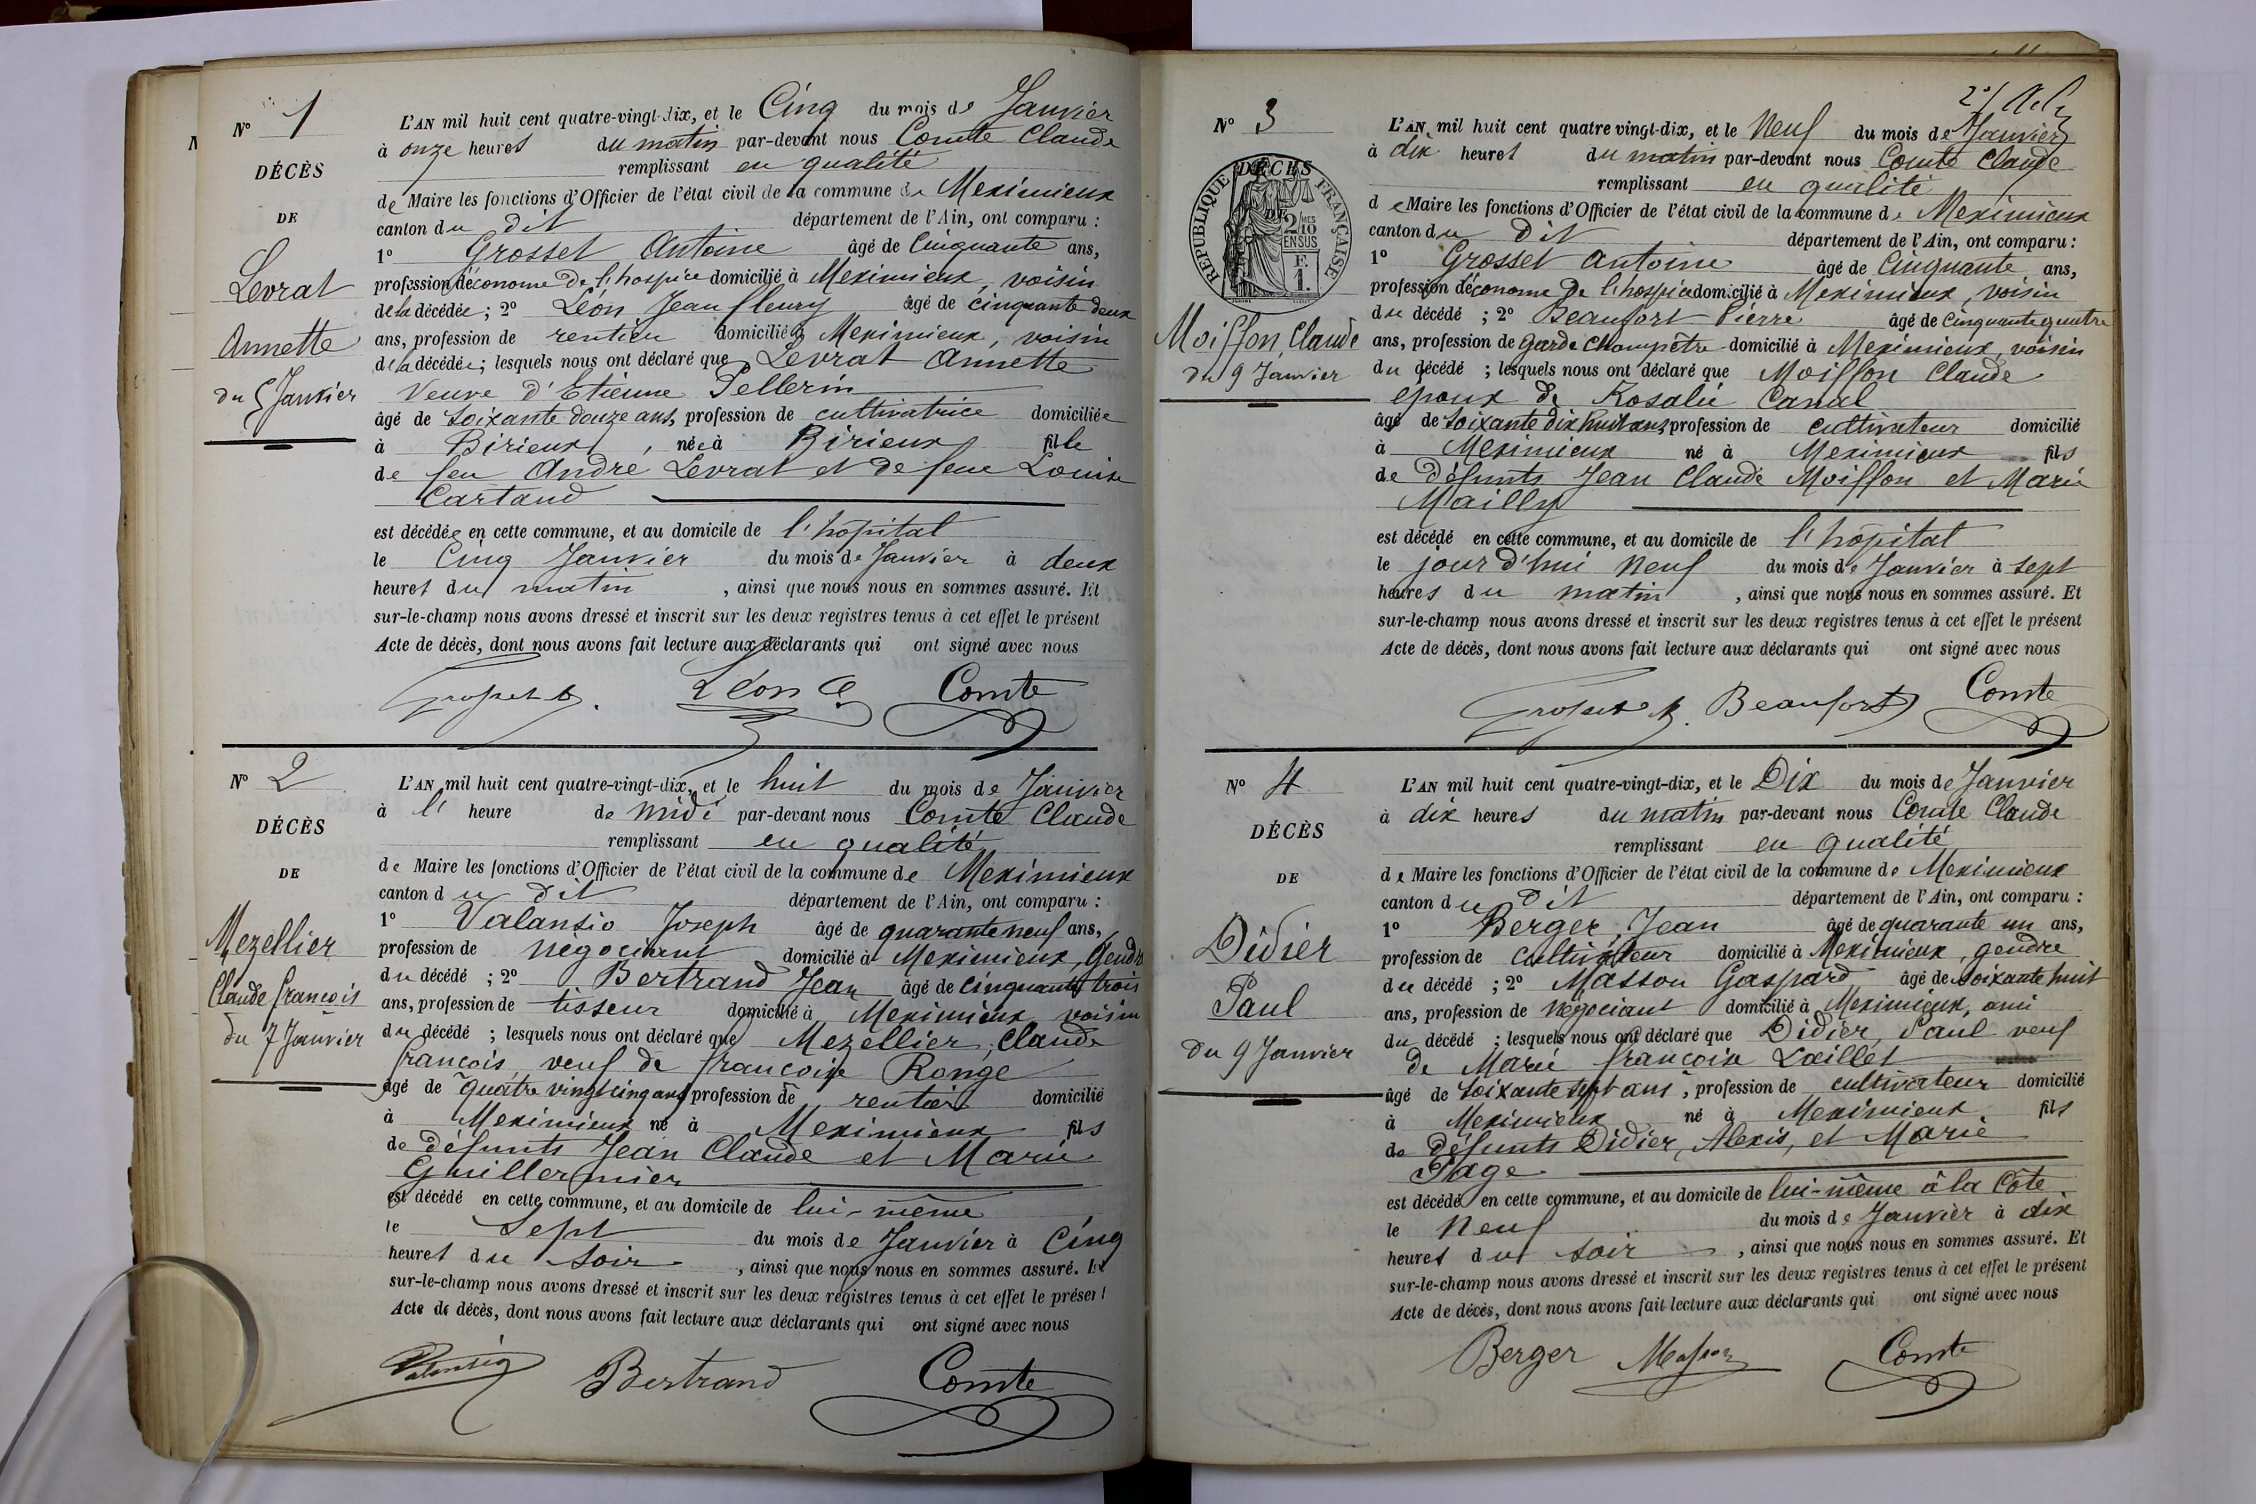 N° 1
DÉCÈS
DE
Levrat
Annette
du 5 Janvier
L'AN mil huit cent quatre-vingt-dix, et le Cinq du mois de Janvier
à onze heures du matin par-devant nous Comte Claude
remplissant en qualité
de Maire les fonctions d'Officier de l'état civil de la commune de Meximieux
canton du dit département de l'Ain, ont comparu :
1° Grosset Antoine âgé de Cinquante ans,
profession d'économe de l'hospice domicilié à Meximieux, voisin
de la décédée ; 2° Léon Jean fleury âgé de cinquante deux
ans, profession de rentier domicilié à Meximieux, voisin
de la décédée ; lesquels nous ont déclaré que Levrat Annette
Veuve d'Etienne Pellerin
âgé de soixante douze ans, profession de cultivatrice domiciliée
à Birieux, née à Birieux fille
de feu André Levrat et de feue Louise
Cartaud
est décédée en cette commune, et au domicile de l'hôpital
le Cinq Janvier du mois de Janvier à deux
heures du matin, ainsi que nous nous en sommes assuré. Et
sur-le-champ nous avons dressé et inscrit sur les deux registres tenus à cet effet le présent
Acte de décès, dont nous avons fait lecture aux déclarants qui ont signé avec nous
Grosset Léon Comte
N° 2
DÉCÈS
DE
Mezellier
Claude françois
du 7 Janvier
L'AN mil huit cent quatre-vingt-dix, et le huit du mois de Janvier
à l' heure de midi par-devant nous Comte Claude
remplissant en qualité
de Maire les fonctions d'Officier de l'état civil de la commune de Meximieux
canton du dit département de l'Ain, ont comparu :
1° Valansio Joseph âgé de quarante neuf ans,
profession de négociant domicilié à Meximieux, Gendre
du décédé ; 2° Bertrand Jean âgé de cinquante trois
ans, profession de tisseur domicilié à Meximieux voisin
du décédé ; lesquels nous ont déclaré que Mezellier, Claude
françois veuf de françoise Ronge
âgé de quatre vingt cinq ans profession de rentier domicilié
à Meximieux né à Meximieux fils
de défunts Jean Claude et Marie
Guillermier
est décédé en cette commune, et au domicile de lui-même
le Sept du mois de Janvier à Cinq
heures du soir, ainsi que nous nous en sommes assuré. Et
sur-le-champ nous avons dressé et inscrit sur les deux registres tenus à cet effet le présent
Acte de décès, dont nous avons fait lecture aux déclarants qui ont signé avec nous
Bertrand Comte
N° 3
DÉCÈS
DE
RÉPUBLIQUE FRANÇAISE
2/10 EN SUS
F. 1.
Moiffon, Claude
du 9 Janvier
L'AN mil huit cent quatre vingt-dix, et le Neuf du mois de Janvier
à dix heures du matin par-devant nous Comte Claude
remplissant en qualité
de Maire les fonctions d'Officier de l'état civil de la commune de Meximieux
canton du dit département de l'Ain, ont comparu :
1° Grosset Antoine âgé de Cinquante ans,
profession d'économe de l'hospice domicilié à Meximieux, voisin
du décédé ; 2° Beaufort Pierre âgé de cinquante quatre
ans, profession de garde champêtre domicilié à Meximieux, voisin
du décédé ; lesquels nous ont déclaré que Moiffon Claude
époux de Rosalie Canal
âgé de soixante dix huit ans, profession de cultivateur domicilié
à Meximieux né à Meximieux fils
de défunts Jean Claude Moiffon et Marie
Mailly
est décédé en cette commune, et au domicile de l'hôpital
le jour d'hui Neuf du mois de Janvier à sept
heures du matin, ainsi que nous nous en sommes assuré. Et
sur-le-champ nous avons dressé et inscrit sur les deux registres tenus à cet effet le présent
Acte de décès, dont nous avons fait lecture aux déclarants qui ont signé avec nous
Grosset Beaufort Comte
N° 4
DÉCÈS
DE
Didier
Paul
Du 9 Janvier
L'AN mil huit cent quatre-vingt-dix, et le Dix du mois de Janvier
à dix heures du matin par-devant nous Comte Claude
remplissant en qualité
de Maire les fonctions d'Officier de l'état civil de la commune de Meximieux
canton du dit département de l'Ain, ont comparu :
1° Berger, Jean âgé de quarante un ans,
profession de cultivateur domicilié à Meximieux, gendre
du décédé ; 2° Masson Gaspard âgé de soixante huit
ans, profession de négociant domicilié à Meximieux, ami
du décédé ; lesquels nous ont déclaré que Didier, Paul veuf
de Marie françoise Laillet
âgé de soixante sept ans, profession de cultivateur domicilié
à Meximieux né à Meximieux fils
de défunts Didier, Alexis, et Marie
Page
est décédé en cette commune, et au domicile de lui-même à la Côte
le Neuf du mois de Janvier à dix
heures du soir, ainsi que nous nous en sommes assuré. Et
sur-le-champ nous avons dressé et inscrit sur les deux registres tenus à cet effet le présent
Acte de décès, dont nous avons fait lecture aux déclarants qui ont signé avec nous
Berger Masson Comte